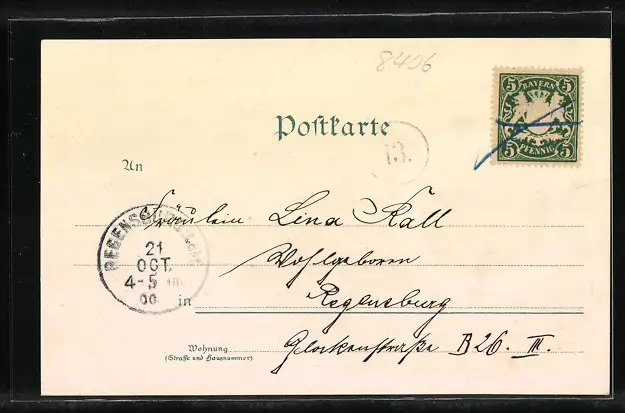 8406
5 BAYERN 5
5 PFENNIG 5
Postkarte
13.
An
Fräulein Lina Kall
REGENSBURG
21
OCT.
4-5
00
Wohlgeboren
in Regensburg
Glockenstraße B 26. III.
Wohnung
(Straße und Hausnummer)